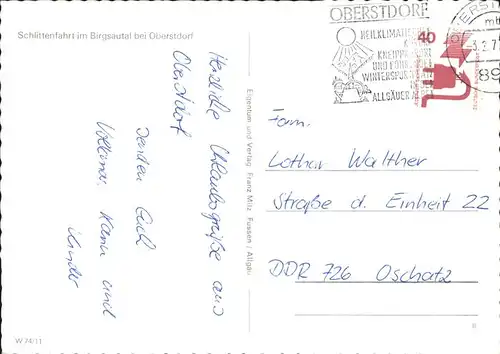 Schlittenfahrt im Birgsautal bei Oberstdorf
Herzliche Urlaubsgrüße aus
Oberstdorf
senden Euch
Volkmar, Karin und
Kinder
W 74/11
Eigentum und Verlag Franz Milz, Füssen / Allgäu
OBERSTDORF
HEILKLIMATISCHER
KNEIPP
UND
WINTERSPORT
ALLGÄUER
40
89
Fam.
Lothar Walther
Straße d. Einheit 22
DDR 726 Oschatz